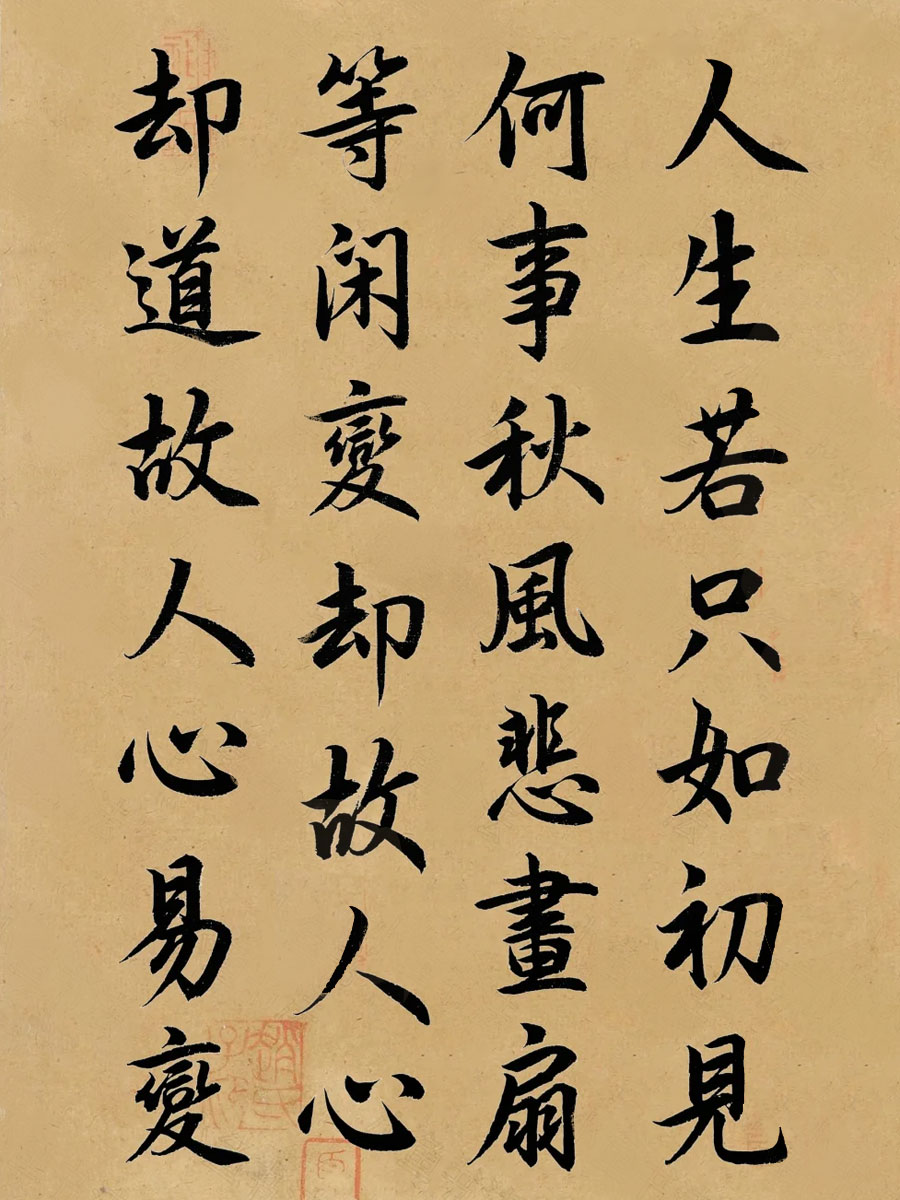 人生若只如初見
何事秋風悲畫扇
等闲變却故人心
却道故人心易變